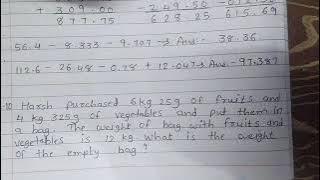 + 309.00
877.75
- 249.50
628.25
- 012.56
615.69
56.4 - 8.333 - 9.707 → Ans:- 38.36
112.6 - 26.48 - 0.78 + 12.047 → Ans:- 97.387
10 Harsh purchased 6kg 25g of fruits and
4 kg 325g of vegetables and put them in
a bag. The weight of bag with fruits and
vegetables is 12 kg what is the weight
of the empty bag?